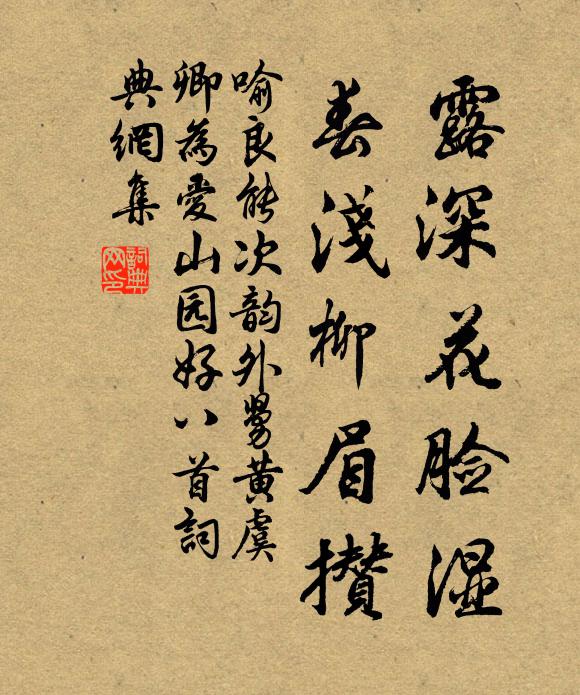 露深花脸湿
春浅柳眉攒
喻良能次韵外舅黄虞
卿为爱山园好八首詞
典網集
詞典网印